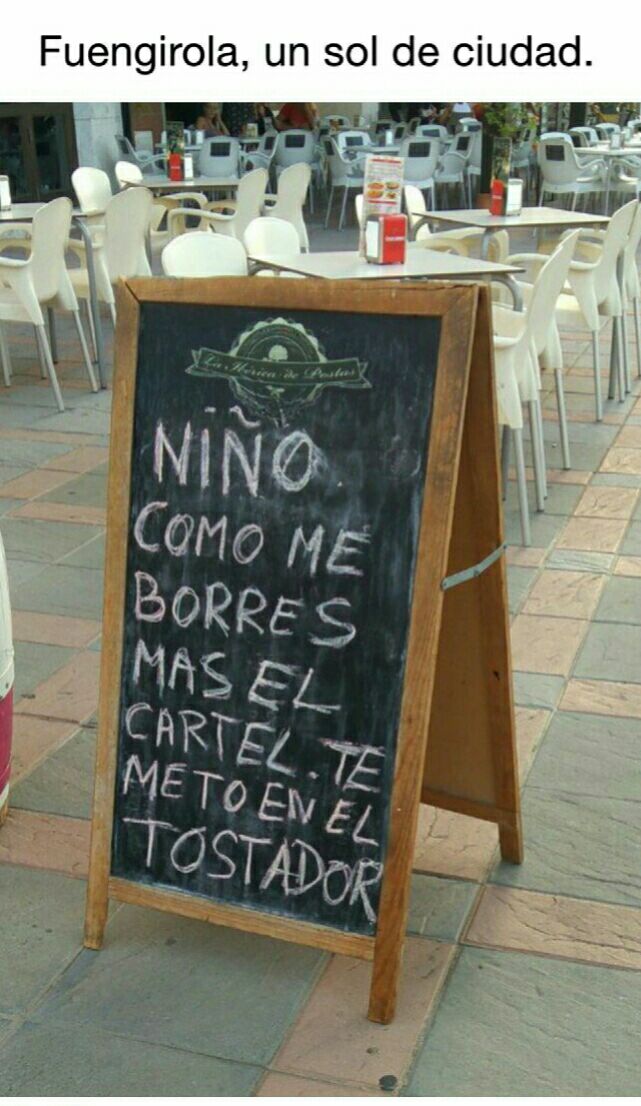 Fuengirola, un sol de ciudad.
La Ibérica de Postas
NIÑO
COMO ME
BORRES
MAS EL
CARTEL. TE
METO EN EL
TOSTADOR